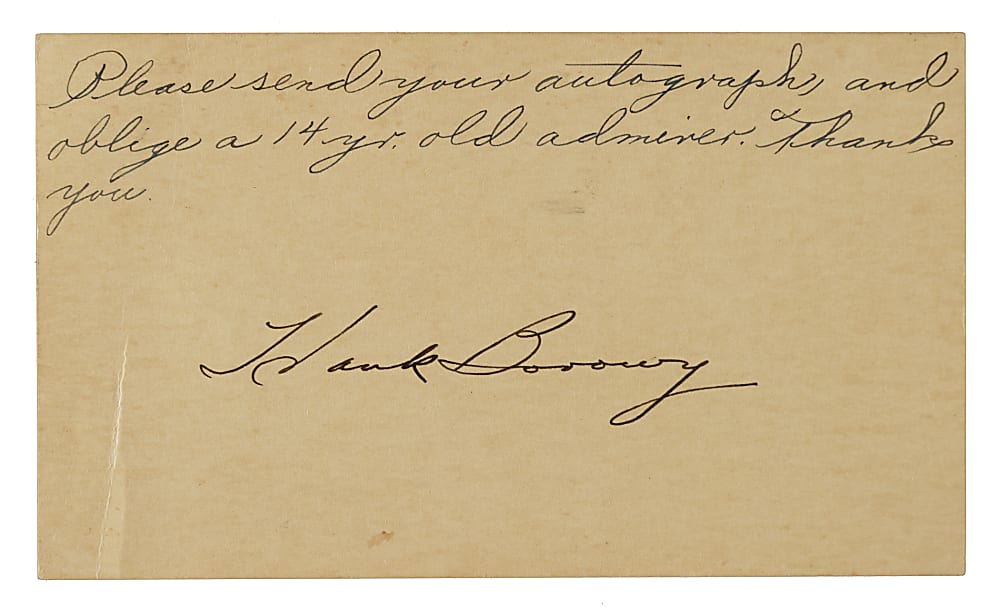 Please send your autograph, and
oblige a 14 yr. old admirer. Thank
you.
Hank Borowy